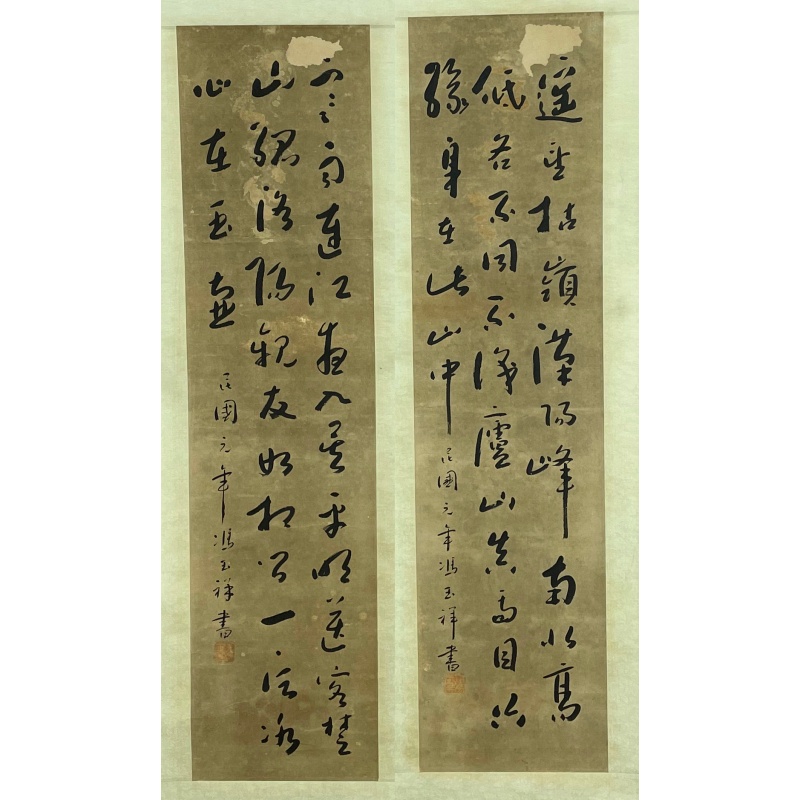 遥望枯嶺漢陽峰南北高
低各不同不識廬山真面目只
緣身在此山中 民國元年馮玉祥書
寒雨連江夜入吳平明送客楚
山孤洛陽親友如相問一片冰
心在玉壺 民國元年馮玉祥書